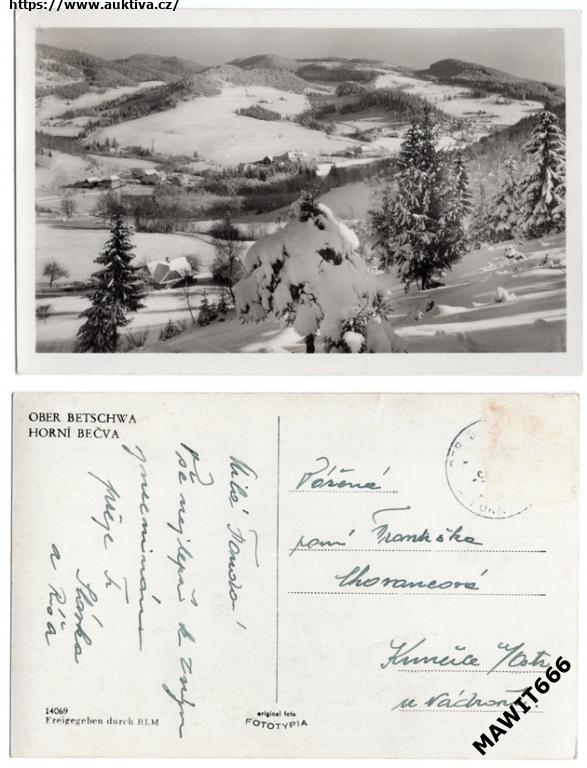 https://www.auktiva.cz/
OBER BETSCHWA
HORNÍ BEČVA
Milá Fando!
vše nejlepší k Tvým
přeje Ti
Slávka
a Róza
14069
Freigegeben durch RLM
original foto
FOTOTYPIA
Vážená
paní Františka
Chovancová
Kunčice
u nádraží
MAWIT666